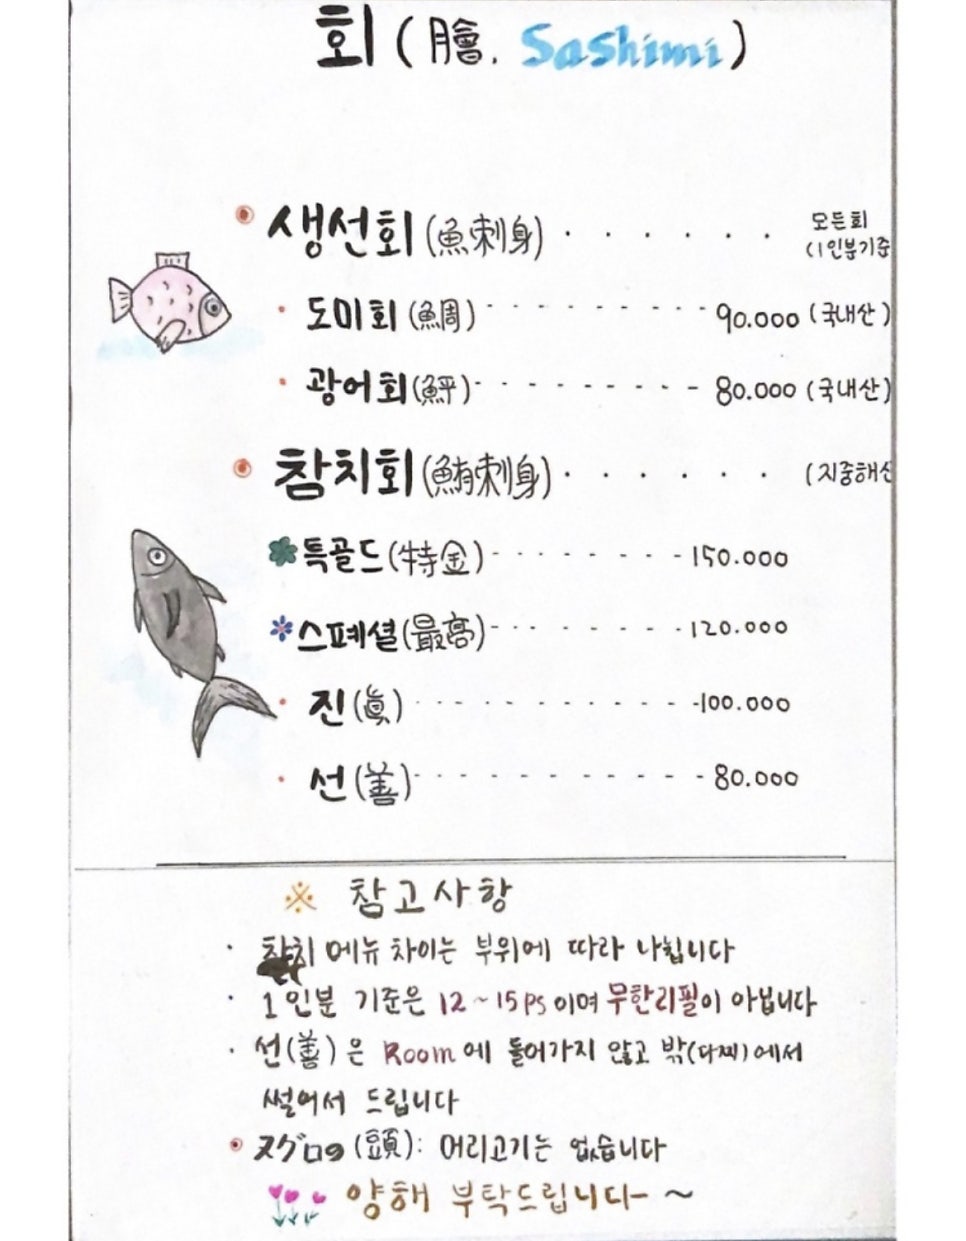 회 (膾. Sashimi)
생선회 (魚刺身) · · · · · · 모든회
(1인분기준
· 도미회 (鯛) - - - - - - - - 90.000 (국내산)
· 광어회 (鮃) - - - - - - - - - 80.000 (국내산)
참치회 (鮪刺身) · · · · · · (지중해산
특골드 (特金) - - - - - - - - 150.000
스페셜 (最高) - - - - - - - - 120.000
· 진 (眞) - - - - - - - - - - 100.000
· 선 (善) - - - - - - - - - - - 80.000
※ 참고사항
· 참치 메뉴 차이는 부위에 따라 나뉩니다
· 1인분 기준은 12~15ps 이며 무한리필이 아닙니다
· 선(善)은 Room에 들어가지 않고 밖(다찌)에서
썰어서 드립니다
(頭): 머리고기는 없습니다
양해 부탁드립니다~